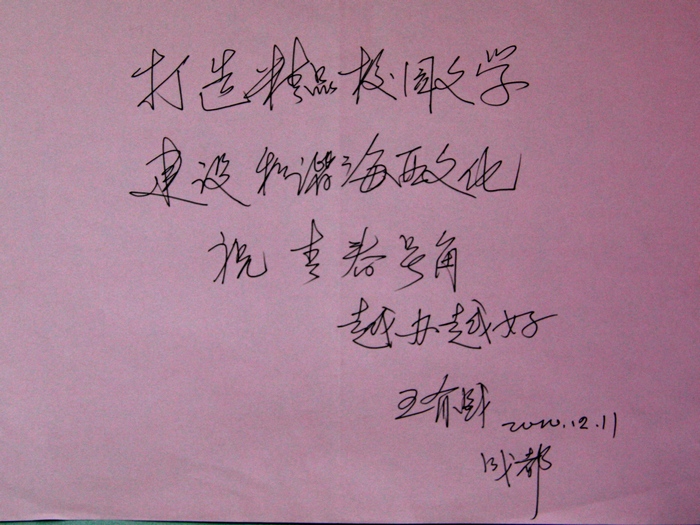 打造精品校园文学
建设和谐海西文化
祝青春号角
越办越好
王 2010.12.11
成都